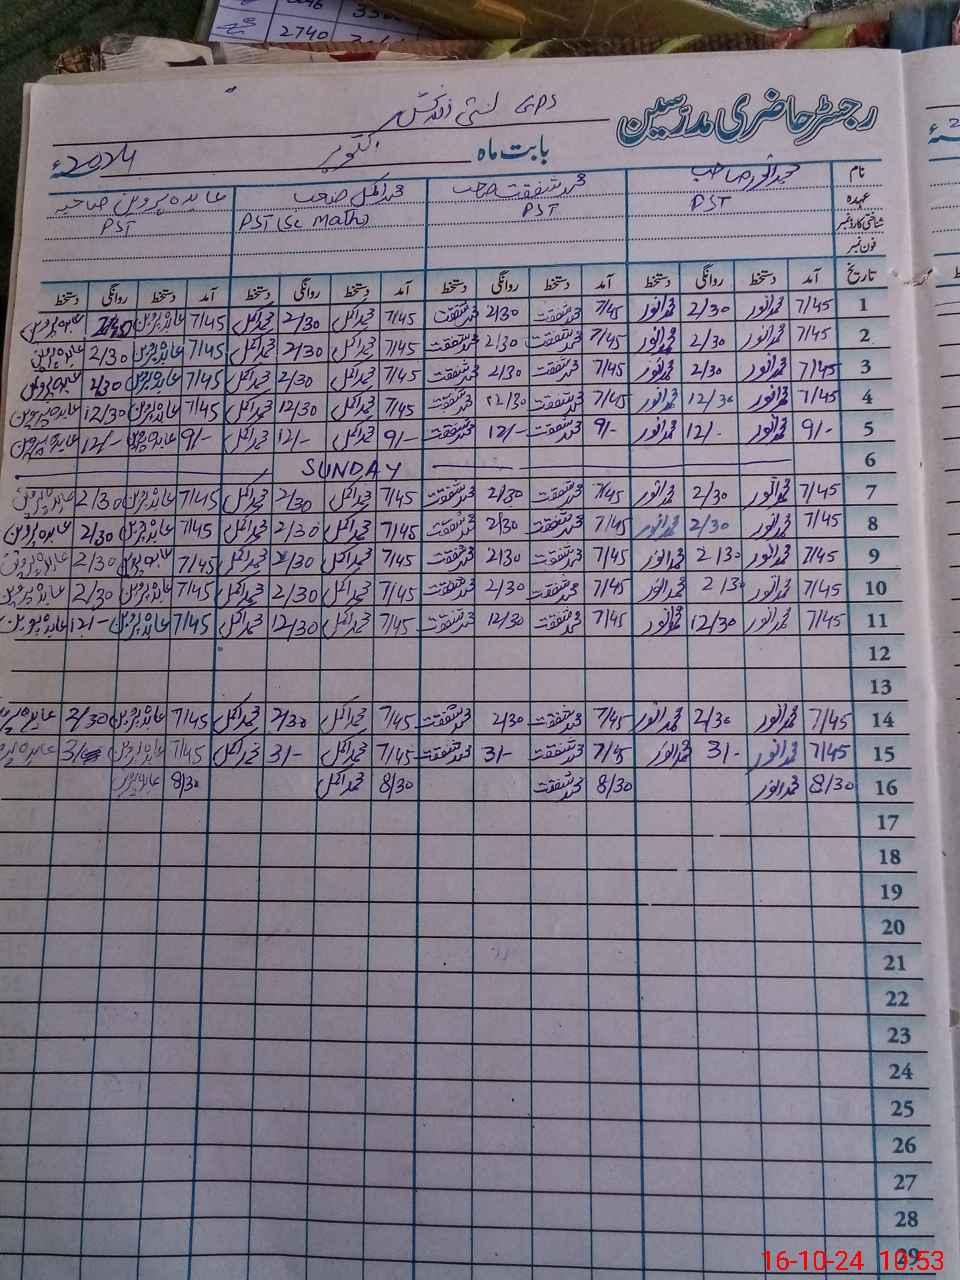 2740
رجسٹر حاضری مدرسین GPS
بابت ماہ اکتوبر 2024ء
نام محمد انور صاحب محمد شفقت صاحب محمد اکمل صاحب عابدہ پروین صاحبہ
عہدہ PST PST PST (Sc Math) PST
شناختی کارڈ نمبر
فون نمبر
تاریخ آمد دستخط روانگی دستخط آمد دستخط روانگی دستخط آمد دستخط روانگی دستخط آمد دستخط روانگی دستخط
1 7/45 محمد انور 2/30 محمد انور 7/45 محمد شفقت 2/30 محمد شفقت 7/45 محمد اکمل 2/30 محمد اکمل 7/45 عابدہ پروین عابدہ پروین
2 7/45 محمد انور 2/30 محمد انور 7/45 محمد شفقت 2/30 محمد شفقت 7/45 محمد اکمل 2/30 محمد اکمل 7/45 عابدہ پروین 2/30 عابدہ پروین
3 7/45 محمد انور 2/30 محمد انور 7/45 محمد شفقت 2/30 محمد شفقت 7/45 محمد اکمل 2/30 محمد اکمل 7/45 عابدہ پروین 2/30 عابدہ پروین
4 7/45 محمد انور 12/30 محمد انور 7/45 محمد شفقت 12/30 محمد شفقت 7/45 محمد اکمل 12/30 محمد اکمل 7/45 عابدہ پروین 12/30 عابدہ پروین
5 9/- محمد انور 12/- محمد انور 9/- محمد شفقت 12/- محمد شفقت 9/- محمد اکمل 12/- محمد اکمل 9/- عابدہ پروین 12/- عابدہ پروین
6 SUNDAY
7 7/45 محمد انور 2/30 محمد انور 7/45 محمد شفقت 2/30 محمد شفقت 7/45 محمد اکمل 2/30 محمد اکمل 7/45 عابدہ پروین 2/30 عابدہ پروین
8 7/45 محمد انور 2/30 محمد انور 7/45 محمد شفقت 2/30 محمد شفقت 7/45 محمد اکمل 2/30 محمد اکمل 7/45 عابدہ پروین 2/30 عابدہ پروین
9 7/45 محمد انور 2/30 محمد انور 7/45 محمد شفقت 2/30 محمد شفقت 7/45 محمد اکمل 2/30 محمد اکمل 7/45 عابدہ پروین 2/30 عابدہ پروین
10 7/45 محمد انور 2/30 محمد انور 7/45 محمد شفقت 2/30 محمد شفقت 7/45 محمد اکمل 2/30 محمد اکمل 7/45 عابدہ پروین 2/30 عابدہ پروین
11 7/45 محمد انور 12/30 محمد انور 7/45 محمد شفقت 12/30 محمد شفقت 7/45 محمد اکمل 12/30 محمد اکمل 7/45 عابدہ پروین 12/- عابدہ پروین
12
13
14 7/45 محمد انور 2/30 محمد انور 7/45 محمد شفقت 2/30 محمد شفقت 7/45 محمد اکمل 2/30 محمد اکمل 7/45 عابدہ پروین 2/30 عابدہ پروین
15 7/45 محمد انور 3/- محمد انور 7/45 محمد شفقت 3/- محمد شفقت 7/45 محمد اکمل 3/- محمد اکمل 7/45 عابدہ پروین عابدہ پروین
16 8/30 محمد انور 8/30 محمد شفقت 8/30 محمد اکمل 8/30 عابدہ پروین
17
18
19
20
21
22
23
24
25
26
27
28
29
16-10-24 10:53